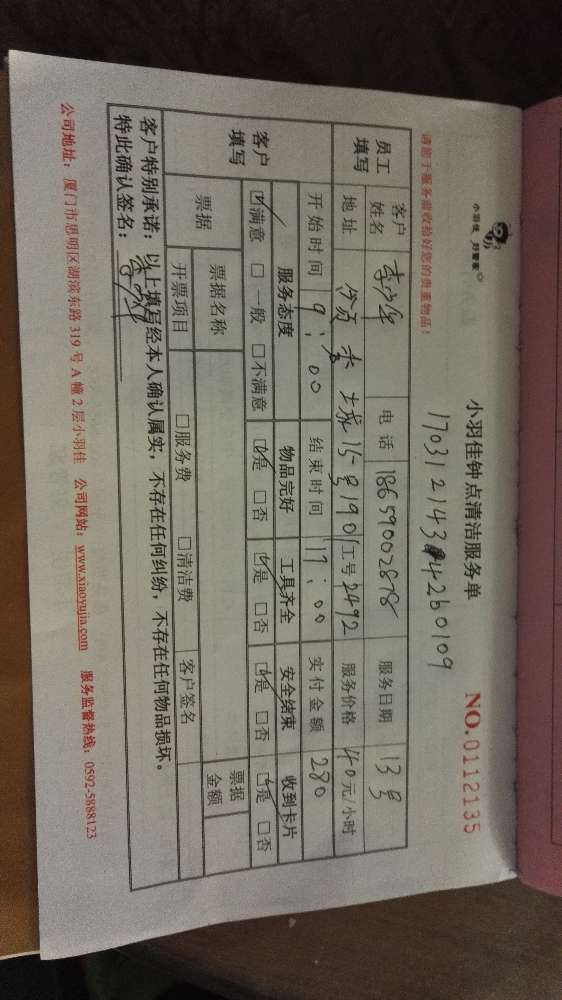 小羽佳 好管家
小羽佳钟点清洁服务单
NO.0112135
请您于服务前收拾好您的贵重物品！
员工填写 客户姓名 电话 18659002878 服务日期 13号
地址 15-号1901 工号 2492 服务价格 40元/小时
开始时间 9:00 结束时间 17:00 实付金额 280
客户填写 服务态度 物品完好 工具齐全 安全结束 收到卡片
☑满意 □一般 □不满意 ☑是 □否 ☑是 □否 ☑是 □否 ☑是 □否
票据 票据名称 票据金额
开票项目 □服务费 □清洁费 客户签名
客户特别承诺：以上填写经本人确认属实，不存在任何纠纷，不存在任何物品损坏。
特此确认签名：
公司地址：厦门市思明区湖滨东路 319 号 A 幢 2 层小羽佳 公司网站：www.xiaoyujia.com 服务监督热线：0592-5888123